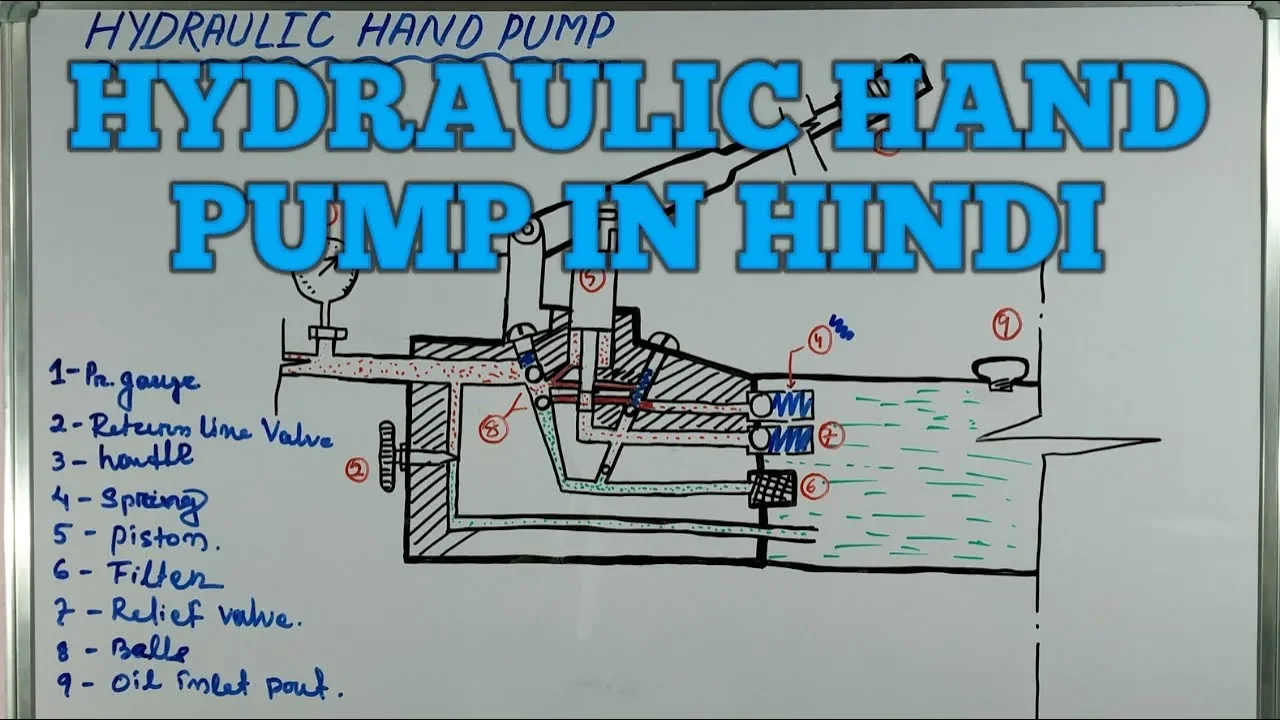 HYDRAULIC HAND PUMP
HYDRAULIC HAND
PUMP IN HINDI
5
4
9
1 - Pr. gauge
2 - Return line Valve
3 - handle
4 - Spring
5 - piston.
6 - Filter
7 - Relief valve.
8 - Balls
9 - Oil inlet pout.
8
7
2
6